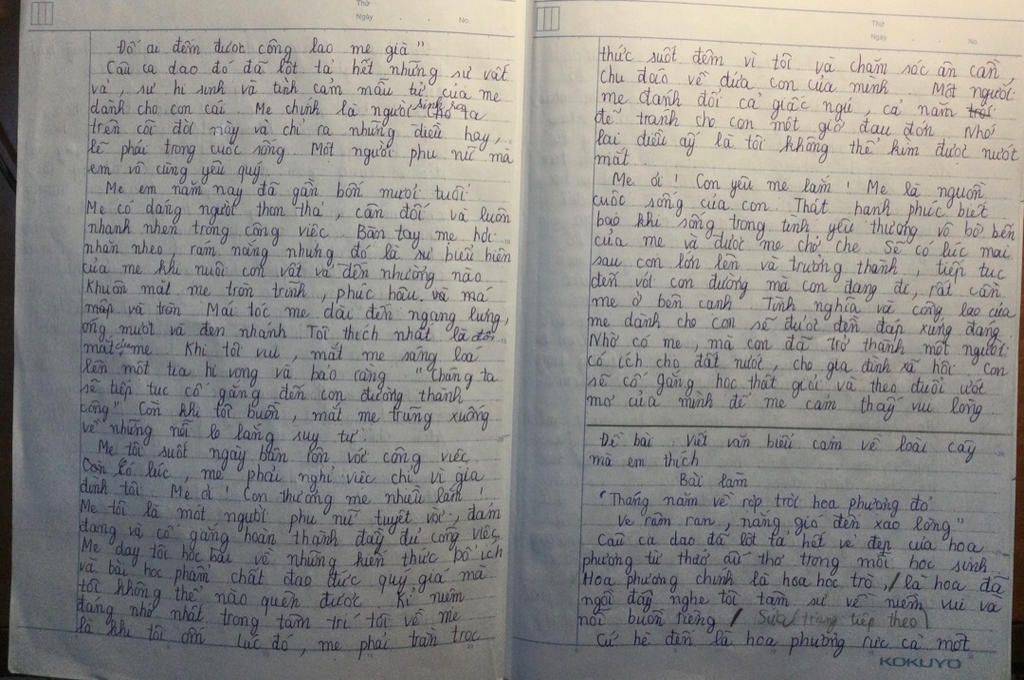 Thứ
Ngày
No.
Đố ai đếm được công lao mẹ già"
Câu ca dao đó đã lột tả hết những sự vất
vả, sự hi sinh và tình cảm mẫu tử của mẹ
dành cho con cái. Mẹ chính là người sinh ra cho ta
trên cõi đời này và chỉ ra những điều hay,
lẽ phải trong cuộc sống. Một người phụ nữ mà
em vô cùng yêu quý.
Mẹ em năm nay đã gần bốn mươi tuổi
Mẹ có dáng người thon thả, cân đối và luôn
nhanh nhẹn trong công việc. Bàn tay mẹ hơi
nhăn nheo, rám nắng nhưng đó là sự biểu hiện
của mẹ khi nuôi con vất vả đến nhường nào
Khuôn mặt mẹ tròn trĩnh, phúc hậu và má
mập và tròn. Mái tóc mẹ dài đến ngang lưng,
óng mượt và đen nhánh. Tôi thích nhất là đôi
mắt của mẹ. Khi tôi vui, mắt mẹ sáng loá
lên một tia hi vọng và bảo rằng "Chúng ta
sẽ tiếp tục cố gắng đến con đường thành
công" Còn khi tôi buồn, mắt mẹ trũng xuống
về những nỗi lo lắng suy tư.
Mẹ tôi suốt ngày bận rộn với công việc
Có lúc, mẹ phải nghỉ việc chỉ vì gia
đình tôi. Mẹ ơi! Con thương mẹ nhiều lắm!
Mẹ tôi là một người phụ nữ tuyệt vời, đảm
đang và cố gắng hoàn thành đầy đủ công việc
Mẹ dạy tôi học bài về những kiến thức bổ ích
và bài học phẩm chất đạo đức quý giá mà
tôi không thể nào quên được. Kỉ niệm
đáng nhớ nhất trong tâm trí tôi về mẹ
là khi tôi ốm lúc đó, mẹ phải trằn trọc
Thứ
Ngày
No.
thức suốt đêm vì tôi và chăm sóc ân cần,
chu đáo về đứa con của mình. Một người
mẹ đánh đổi cả giấc ngủ, cả năm trời
để tránh cho con một giờ đau đớn. Nhớ
lại điều ấy là tôi không thể kìm được nước
mắt.
Mẹ ơi! Con yêu mẹ lắm! Mẹ là nguồn
cuộc sống của con. Thật hạnh phúc biết
bao khi sống trong tình yêu thương vô bờ bến
của mẹ và được mẹ chở che. Sẽ có lúc mai
sau con lớn lên và trưởng thành, tiếp tục
đến với con đường mà con đang đi, rất cần
mẹ ở bên cạnh. Tình nghĩa và công lao của
mẹ dành cho con sẽ được đền đáp xứng đáng
Nhờ có mẹ, mà con đã trở thành một người
có ích cho đất nước, cho gia đình xã hội. Con
sẽ cố gắng học thật giỏi và theo đuổi ước
mơ của mình để mẹ cảm thấy vui lòng.
Đề bài: Viết văn biểu cảm về loài cây
mà em thích
Bài làm
"Tháng năm về rợp trời hoa phượng đỏ
Ve râm ran, nắng gió đến xao lòng"
Câu ca dao đã lột tả hết vẻ đẹp của hoa
phượng từ thuở ấu thơ trong mỗi học sinh
Hoa phượng chính là hoa học trò, / là hoa đã
ngồi đấy nghe tôi tâm sự về niềm vui và
nỗi buồn riêng / Sửa (trang tiếp theo)
Cứ hè đến là hoa phượng rực cả một
KOKUYO